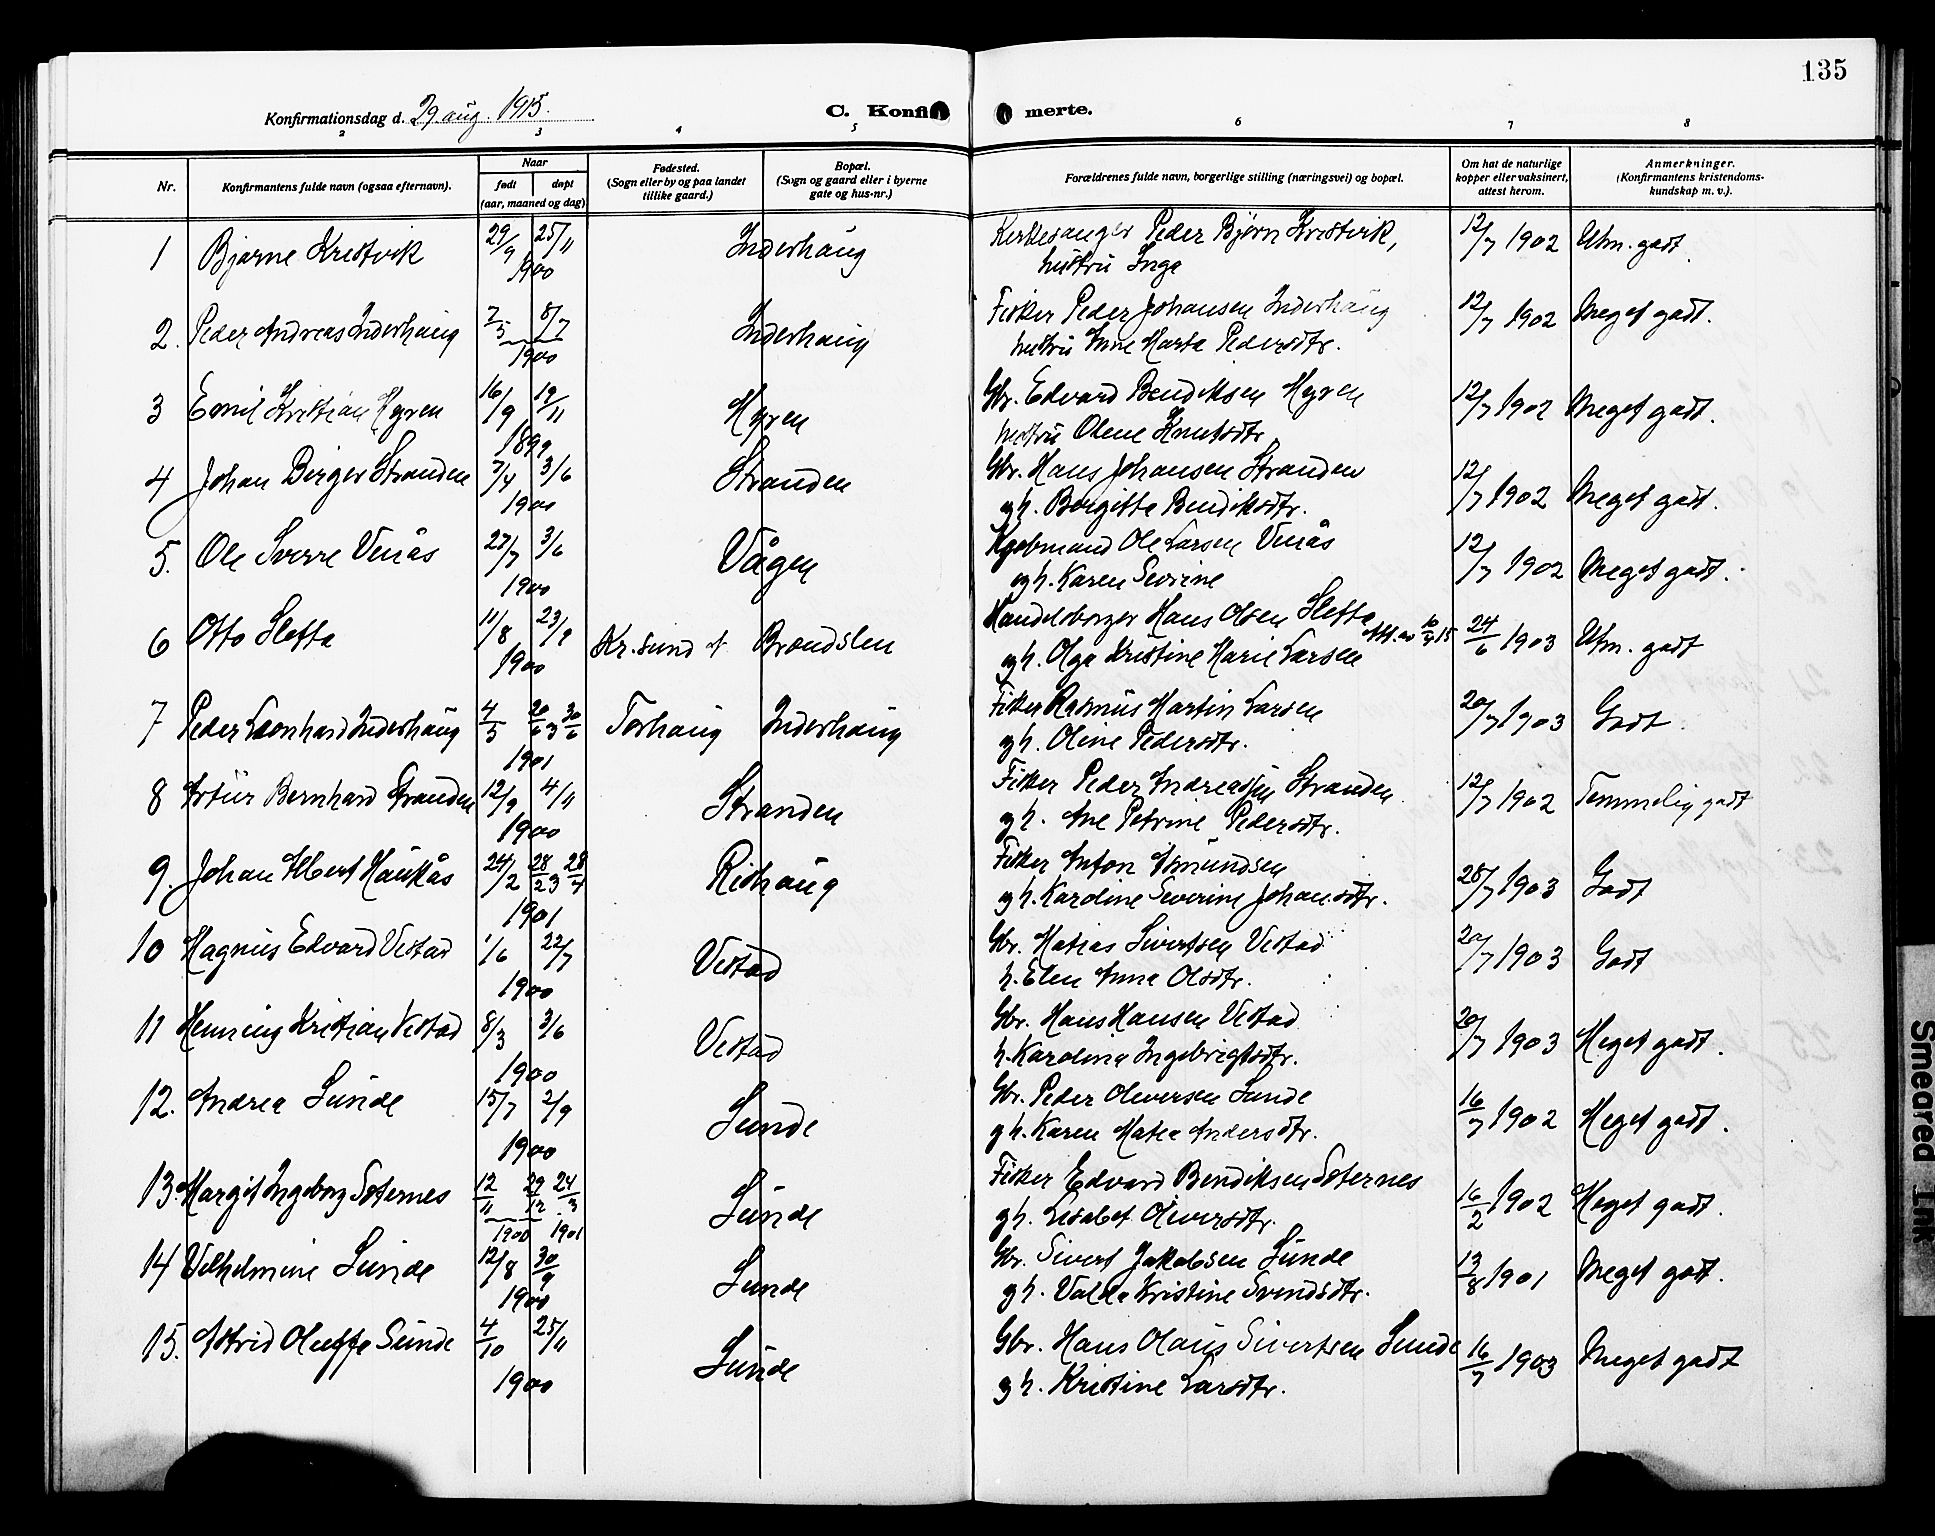 135
Konfirmationsdag d. 29 aug. 1915.
C. Konfi merte.
2 3 4 5 6 7 8
Nr.
Konfirmantens fulde navn (ogsaa efternavn).
Naar
født døpt
(aar, maaned og dag)
Fødested.
(Sogn eller by og paa landet
tillike gaard.)
Bopæl.
(Sogn og gaard eller i byerne
gate og hus-nr.)
Forældrenes fulde navn, borgerlige stilling (næringsvei) og bopæl.
Om hat de naturlige
kopper eller vaksinert,
attest herom.
Anmerkninger.
(Konfirmantens kristendoms-
kundskap m. v.).
1 Bjarne Krestvik 29/9 25/11 Inderhaug Kirkesanger Peder Bjørn Krestvik, 12/7 1902 Utm. godt.
1900 hustru Inga
2. Peder Andreas Inderhaug 7/5 8/7 Inderhaug Fisker Peder Johansen Inderhaug 12/7 1902 Meget godt.
1900 hustru Anne Marta Pedersdtr.
3 Emil Kristian Myren 16/9 19/11 Myren Gbr. Edvard Bendiksen Myren 12/7 1902 Meget godt.
1899 hustru Olene Knutsdtr
4 Johan Birger Stranden 7/4 3/6 Stranden Gbr. Hans Johansen Stranden 12/7 1902 Meget godt.
1900 og h. Borgitta Bendiksdtr.
5. Ole Sverre Venås 27/7 3/6 Vågen Kjøbmand Ole Larsen Venås 12/7 1902 Meget godt.
1900 og h. Karen Sevrine
6 Otto Sletta 11/8 23/9 Kr.sund Brandslen Handelsborger Hans Olsen Sletta 24/6 1903 Utm. godt
1900 og h. Olga Kristine Marie Larsen
7 Peder Leonhard Inderhaug 4/5 20/6 3 30/6 Torhaug Inderhaug Fisker Rasmus Martin Larsen 20/7 1903 Godt.
1901 og h. Oline Pedersdtr.
8 Artur Bernhard Stranden 12/9 4/11 Stranden Fisker Peder Andreassen Stranden 12/7 1902 Temmelig godt
1900 og h. Ane Petrine Pedersdtr.
9. Johan Albert Haukås 24/2 28/2 3 28/4 Rishaug Fisker Anton Amundsen 28/7 1903 Godt
1901 og h. Karoline Severine Johansdtr.
10 Magnus Edvard Vestad 1/6 22/7 Vestad Gbr. Matias Sivertsen Vestad 20/7 1903 Godt
1900 h. Elen Anna Olsdtr.
11 Henning Kristian Vestad 8/3 3/6 Vestad Gbr. Hans Hansen Vestad 20/7 1903 Meget godt.
1900 h. Karolina Ingebrigtsdtr.
12. Andrea Sunde 15/7 2/9 Sunde Gbr. Peder Oliversen Sunde 16/7 1902 Meget godt.
1900 og h. Karen Matea Andersdtr.
13. Margit Ingeborg Soternes 12/11 29/12 24/3 Sunde Fisker Edvard Bendiksen Soternes 16/2 1902 Meget godt.
1900 1901 og h. Lisabet Oliversdtr.
14 Vilhelmine Sunde 12/8 30/9 Sunde Gbr. Sivert Jakobsen Sunde 13/8 1901 Meget godt.
1900 og h. Valda Kristine Svendsdtr.
15. Astrid Oluffa Sunde 4/10 25/11 Sunde Gbr. Hans Olaus Sivertsen Sunde 16/7 1903 Meget godt
1900 og h. Kristine Larsdtr.
Smeared Ink